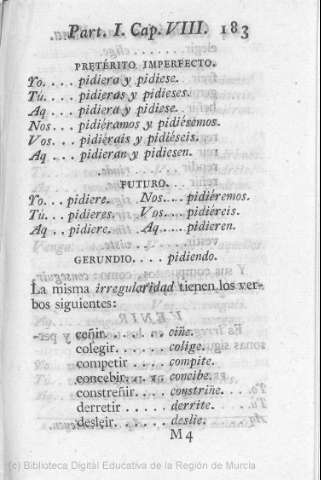 Part. I. Cap. VIII. 183
PRETÉRITO IMPERFECTO.
Yo.... pidiera y pidiese.
Tú.... pidieras y pidieses.
Aq.... pidiera y pidiese.
Nos... pidiéramos y pidiésemos.
Vos... pidiérais y pidiéseis.
Aq.... pidieran y pidiesen.
FUTURO.
Yo... pidiere. Nos.... pidiéremos.
Tú... pidieres. Vos..... pidiéreis.
Aq.. pidiere. Aq..... pidieren.
GERUNDIO..... pidiendo.
La misma irregularidad tienen los ver-
bos siguientes:
ceñir....... ciñe.
colegir...... colige.
competir.... compite.
concebir.... concibe.
constreñir.... constriñe.
derretir..... derrite.
desleir...... deslie.
M 4
(c) Biblioteca Digital Educativa de la Región de Murcia